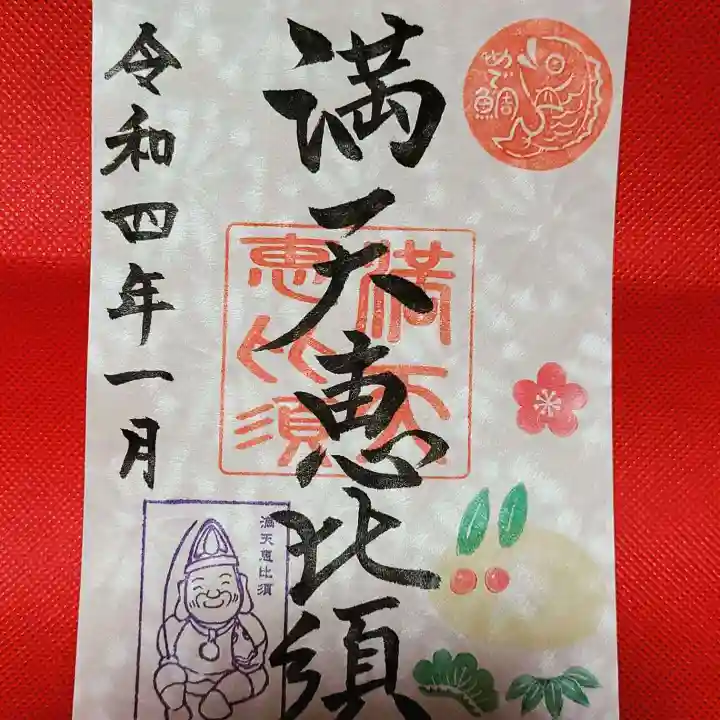 めで鯛
満天恵比須
満天恵比須
令和四年一月
満天恵比須